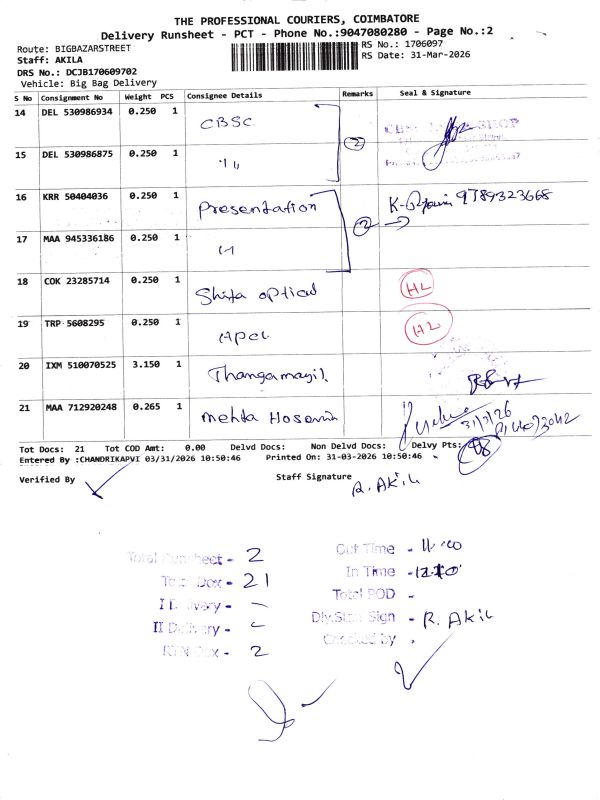 THE PROFESSIONAL COURIERS, COIMBATORE
Delivery Runsheet - PCT - Phone No.:9047080280 - Page No.:2
Route: BIGBAZARSTREET
RS No.: 1706097
Staff: AKILA
RS Date: 31-Mar-2026
DRS No.: DCJB170609702
Vehicle: Big Bag Delivery
S No Consignment No Weight PCS Consignee Details Remarks Seal & Signature
14 DEL 530986934 0.250 1 CBSC
2
15 DEL 530986875 0.250 1 "
16 KRR 50404036 0.250 1 Presentation 9789323668
2
17 MAA 945336186 0.250 1 "
18 COK 23285714 0.250 1 Shifa optical HL
19 TRP 5608295 0.250 1 HPCL HL
20 IXM 510070525 3.150 1 Thangamayil
21 MAA 712920248 0.265 1 Mehta 31/3/26
Tot Docs: 21 Tot COD Amt: 0.00 Delvd Docs: Non Delvd Docs: Delvy Pts:
Entered By :CHANDRIKAPVI 03/31/2026 10:50:46 Printed On: 31-03-2026 10:50:46
Verified By Staff Signature
R. Akil
Total Runsheet - 2
Total Dox - 21
I Delivery -
II Delivery -
RTN Dox - 2
Out Time - 11.00
In Time -
Total POD -
Dly.Staff Sign - R. Akil
Checked by